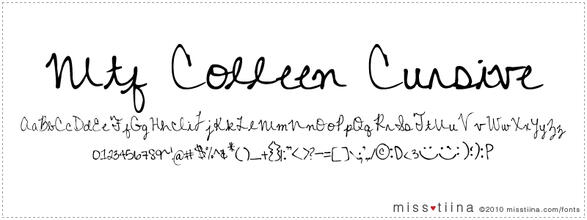 Mtf Colleen Cursive
AaBbCcDdEeFfGgHhIiJjKkLlMmNnOoPpQqRrSsTtUuVvWwXxYyZz
0123456789~!@#$%^&*()_+{}|:"<>?-=[]\;',./©:D<3:):P
miss♥tiina ©2010 misstiina.com/fonts